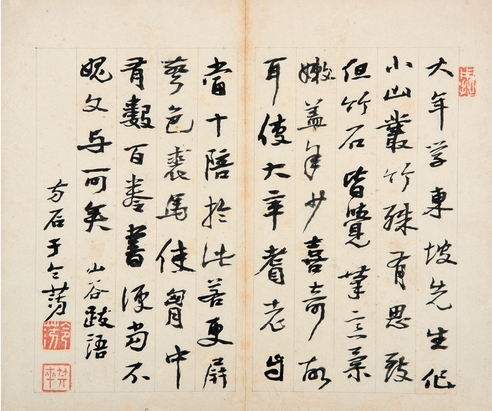 大年学東坡先生作
小山叢竹殊有思致
但竹石皆覺筆意柔
嫩蓋年少喜奇故
耳使大年耆老自
當十陪於此若更屏
聲色裘馬使胷中
有數百卷書便当不
愧文与可矣 山谷跋語
方石于令淓
令淓